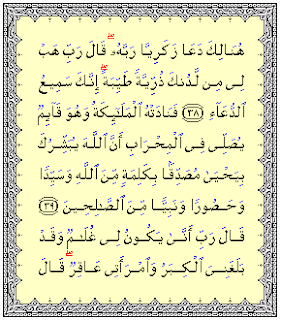 هُنَالِكَ دَعَا زَكَرِيَّا رَبَّهُۥ ۖ قَالَ رَبِّ هَبْ
لِى مِن لَّدُنكَ ذُرِّيَّةً طَيِّبَةً ۖ إِنَّكَ سَمِيعُ
ٱلدُّعَآءِ ﴿٣٨﴾ فَنَادَتْهُ ٱلْمَلَٰٓئِكَةُ وَهُوَ قَآئِمٌ
يُصَلِّى فِى ٱلْمِحْرَابِ أَنَّ ٱللَّهَ يُبَشِّرُكَ
بِيَحْيَىٰ مُصَدِّقًۢا بِكَلِمَةٍ مِّنَ ٱللَّهِ وَسَيِّدًا
وَحَصُورًا وَنَبِيًّا مِّنَ ٱلصَّٰلِحِينَ ﴿٣٩﴾
قَالَ رَبِّ أَنَّىٰ يَكُونُ لِى غُلَٰمٌ وَقَدْ
بَلَغَنِىَ ٱلْكِبَرُ وَٱمْرَأَتِى عَاقِرٌ ۖ قَالَ